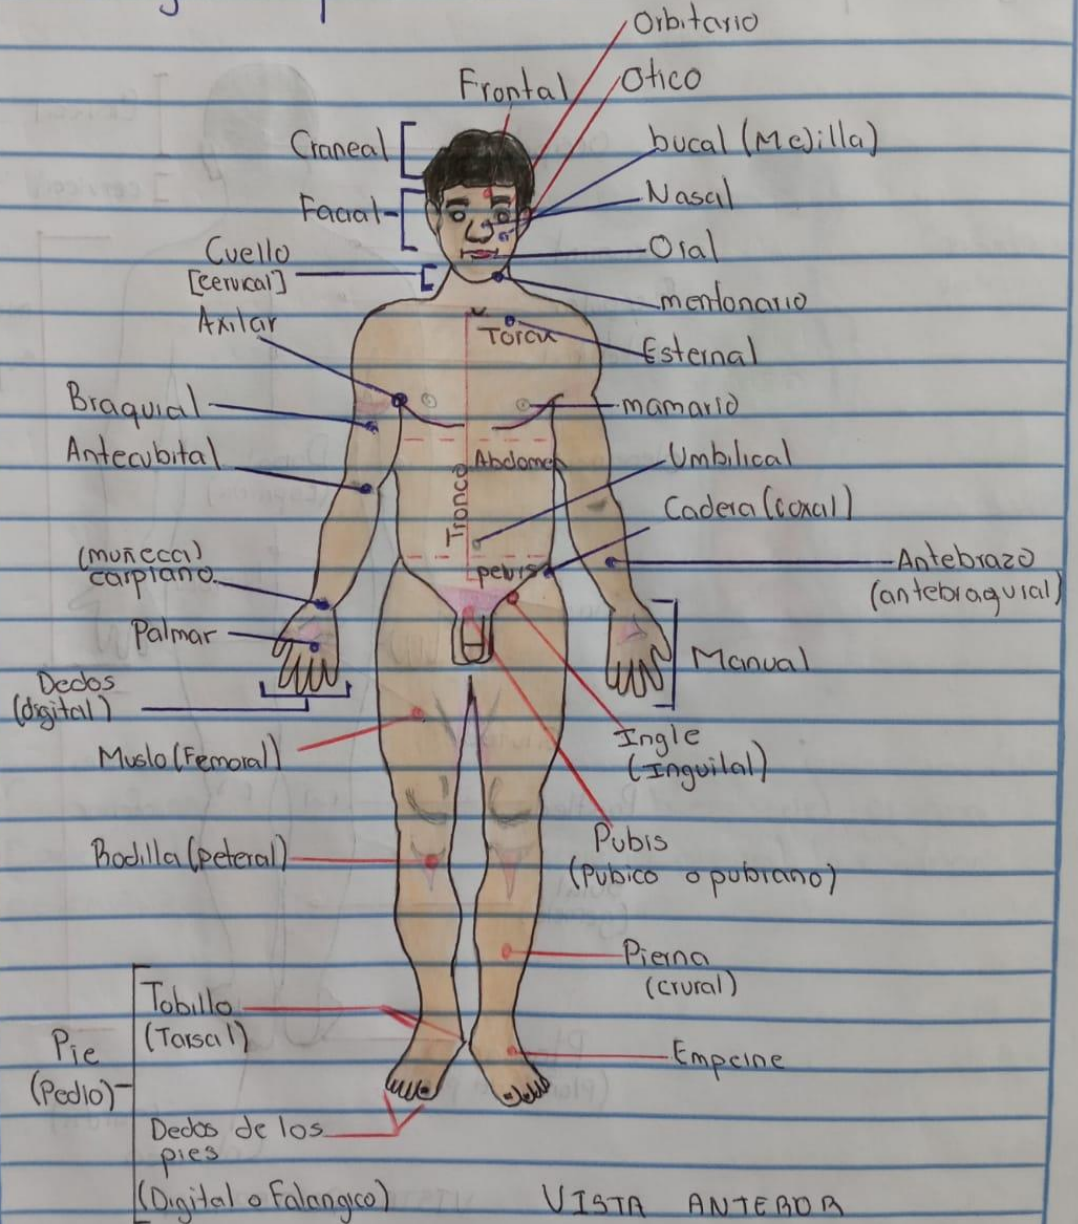 Orbitario
Frontal
Otico
Craneal
bucal (Mejilla)
Facial
Nasal
Cuello
[cervical]
Oral
Axilar
mentonario
Torcu
Esternal
Braquial
mamario
Antecubital
Abdomen
Umbilical
Tronco
Cadera (coxal)
(muñeca)
carpiano
pelvis
Antebrazo
(antebraquial)
Palmar
Manual
Dedos
(digital)
Muslo (Femoral)
Ingle
(Inguilal)
Rodilla (peteral)
Pubis
(Pubico o pubiano)
Pierna
(crural)
Tobillo
(Tarsal)
Pie
(Pedio)
Empeine
Dedos de los
pies
(Digital o Falangico)
VISTA ANTERIOR